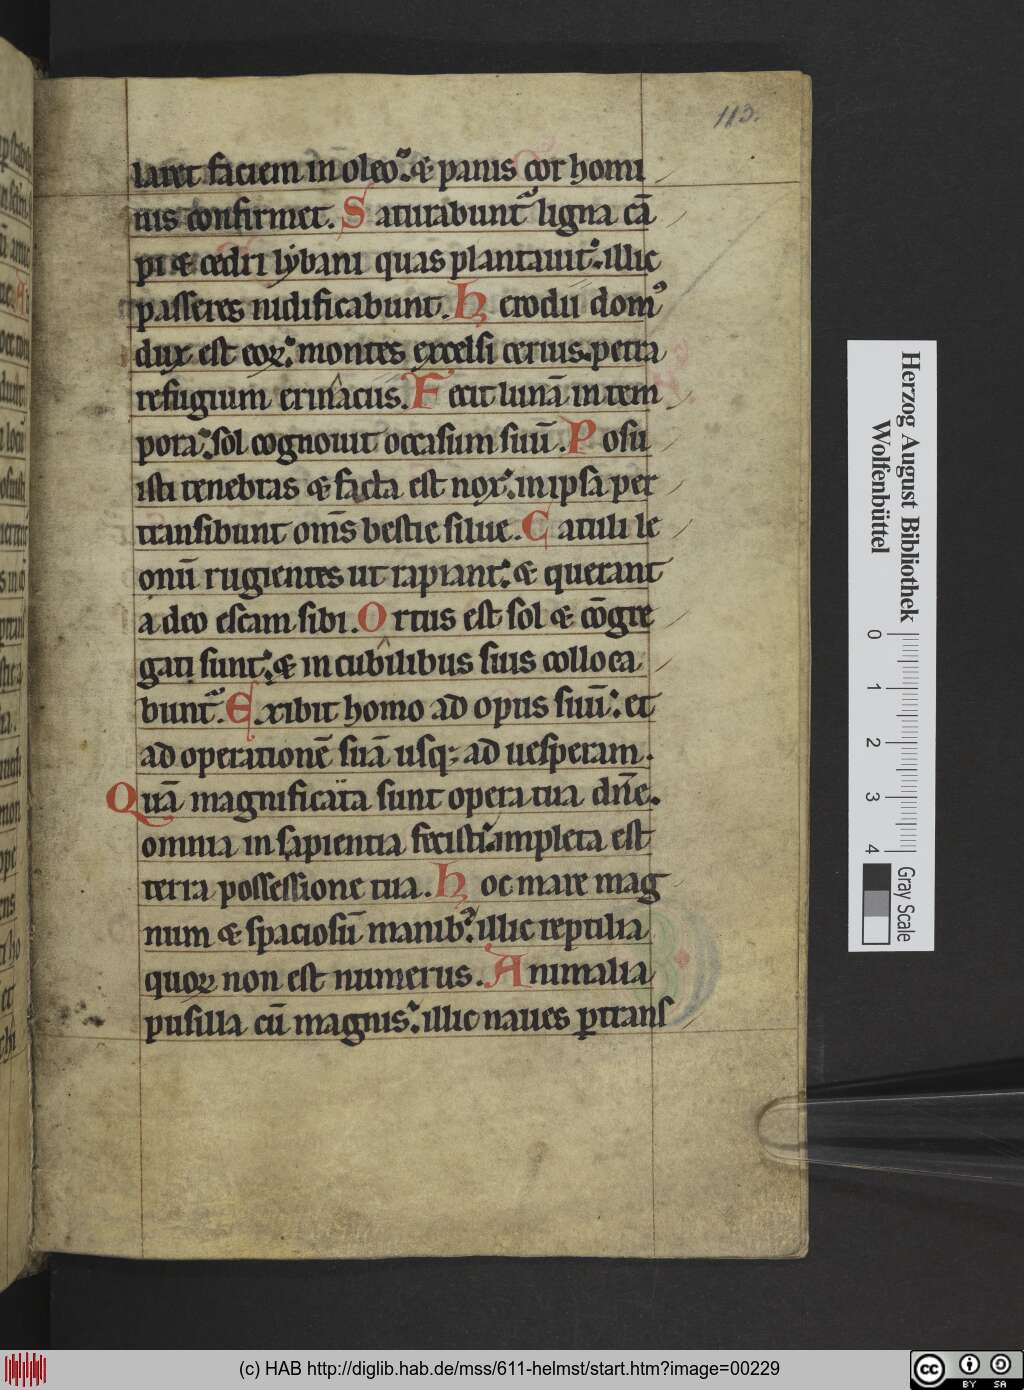 113.
laret faciem in oleo. & panis cor homi
nis confirmet. Saturabunt᷑ ligna cā
pi & cedri lybani quas plantauit. illic
passeres nidificabunt. Herodii domꝰ
dux est eoꝝ. montes excelsi ceruis. petra
refugium erinacus. Fecit lunā in tem
pora. sol cognouit occasum suū. Posu
isti tenebras & facta est nox. in ipsa per
transibunt om̄s bestie silue. Catuli le
onū rugientes ut rapiant. & querant
a deo escam sibi. Ortus est sol & cōgre
gati sunt. & in cubilibus suis colloca
bunt᷑. Exibit homo ad opus suū. et
ad operationē suā usq; ad uesperam.
Quā magnificata sunt opera tua dn̄e.
omnia in sapientia fecisti. impleta est
terra possessione tua. Hoc mare mag
num & spaciosū manibꝰ. illic reptilia
quoꝝ non est numerus. Animalia
pusilla cū magnis. illic naues ꝑtrans
Herzog August Bibliothek
Wolfenbüttel
0 1 2 3 4
Gray Scale
(c) HAB http://diglib.hab.de/mss/611-helmst/start.htm?image=00229
cc BY SA